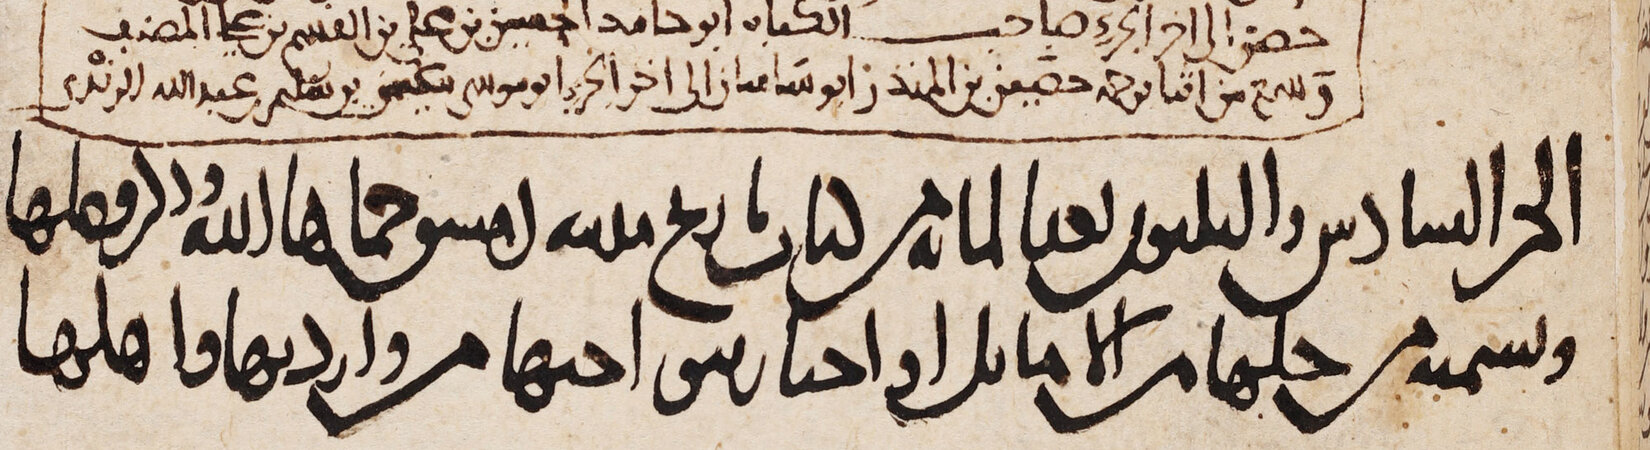 حضر الى اخر الجزء صاحب الكتاب ابو حامد الحسين بن علي بن القسم بن علي المصنف
وسمع من اثنا ترجمة حضين بن المنذر ابو ساسان الى اخر الجزء ابو موسى عيسى بن سليمن بن عبد الله الرندي
الجز السادس والثلثون بعد المايه من كتاب تاريخ مدينه دمشق حماها الله وذكر فضلها
وتسميه من حلها من الاماثل او اجتاز بنواحيها من وارديها واهلها